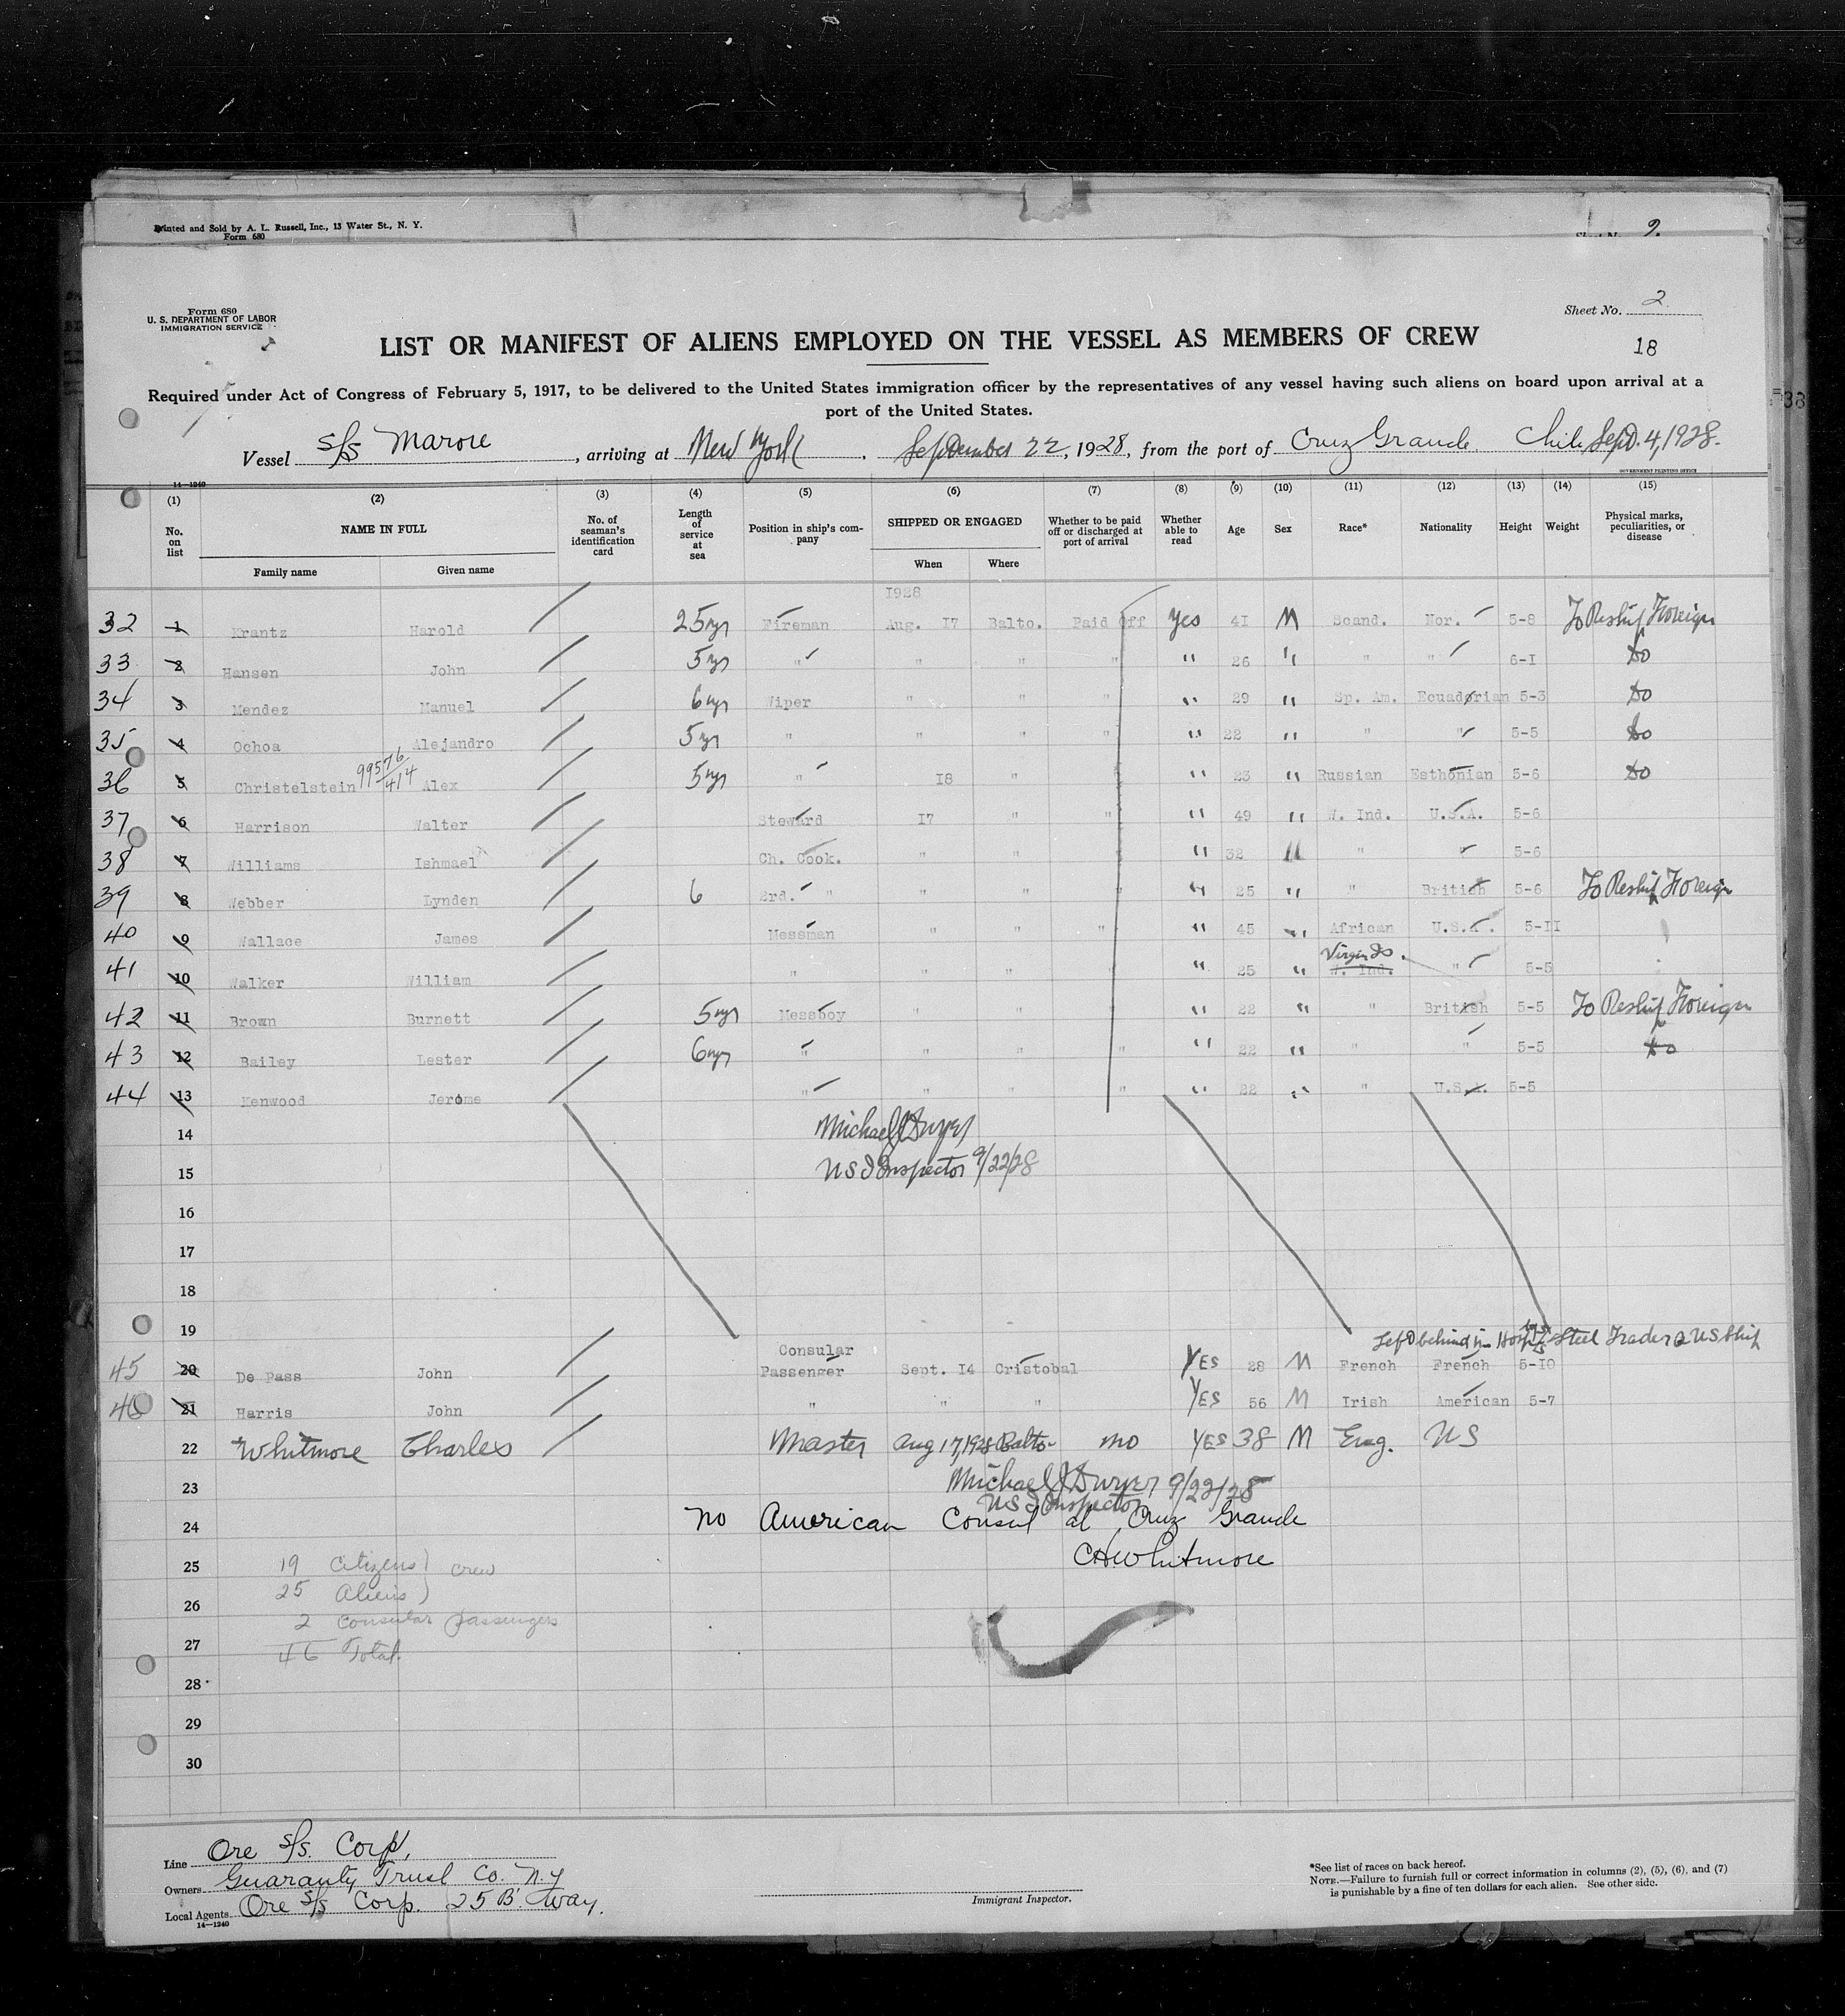 Printed and Sold by A. L. Russell, Inc., 13 Water St., N. Y.
Form 680
Sheet No. 2
9.
Form 680
U. S. DEPARTMENT OF LABOR
IMMIGRATION SERVICE
18
LIST OR MANIFEST OF ALIENS EMPLOYED ON THE VESSEL AS MEMBERS OF CREW
Required under Act of Congress of February 5, 1917, to be delivered to the United States immigration officer by the representatives of any vessel having such aliens on board upon arrival at a
port of the United States.
Vessel S/S Marore, arriving at New York, September 22, 1928, from the port of Cruz Grande Chile Sept. 4, 1928.
14—1240
GOVERNMENT PRINTING OFFICE
(1) (2) (3) (4) (5) (6) (7) (8) (9) (10) (11) (12) (13) (14) (15)
No. on list NAME IN FULL No. of seaman's identification card Length of service at sea Position in ship's company SHIPPED OR ENGAGED Whether to be paid off or discharged at port of arrival Whether able to read Age Sex Race* Nationality Height Weight Physical marks, peculiarities, or disease
Family name Given name When Where
1928
32 1 Krantz Harold 25yr Fireman Aug. 17 Balto. Paid Off Yes 41 M Scand. Nor. 5-8 To Reship Foreign
33 2 Hansen John 5yr " " " " " 26 " " " 6-1 do
34 3 Mendez Manuel 6yr Wiper " " " " 29 " Sp. Am. Ecuadorian 5-3 do
35 4 Ochoa Alejandro 5yr " " " " " 22 " " " 5-5 do
99576/414
36 5 Christelstein Alex 5yr " 18 " " 23 " Russian Esthonian 5-6 do
37 6 Harrison Walter Steward 17 " " " 49 " W. Ind. U.S.A. 5-6
38 7 Williams Ishmael Ch. Cook. " " " 32 " " " 5-6
39 8 Webber Lynden 6 2rd. " " " " " 25 " " British 5-6 To Reship Foreign
40 9 Wallace James Messman " " " " 45 " African U.S.A. 5-11
Virgin Is.
41 10 Walker William " " " " " 25 " W. Ind. " 5-5
42 11 Brown Burnett 5yr Messboy " " " " 22 " " British 5-5 To Reship Foreign
43 12 Bailey Lester 6yr " " " " " 22 " " " 5-5 do
44 13 Kenwood Jerome " " " " " 22 " " U.S.A. 5-5
14 Michael J Dwyer
15 US I Inspector 9/22/28
16
17
18
19 Left behind in Hosp Steel Trader a US Ship
45 20 De Pass John Consular Passenger Sept. 14 Cristobal YES 28 M French French 5-10
46 21 Harris John " " " YES 56 M Irish American 5-7
22 Whitmore Charles Master Aug 17, 1928 Balto- no YES 38 M Eng. US
23 Michael J Dwyer 9/22/28
US I Inspector
24 No American Consul at Cruz Grande
C H Whitmore
25 19 Citizens ) crew
25 Aliens )
26 2 Consular passengers
27 46 Total.
28
29
30
Line Ore S/S. Corp.
Owners Guaranty Trust Co. N.Y
Local Agents Ore S/S Corp. 25 B. Way.
14—1240
Immigrant Inspector.
*See list of races on back hereof.
NOTE.—Failure to furnish full or correct information in columns (2), (5), (6), and (7)
is punishable by a fine of ten dollars for each alien. See other side.